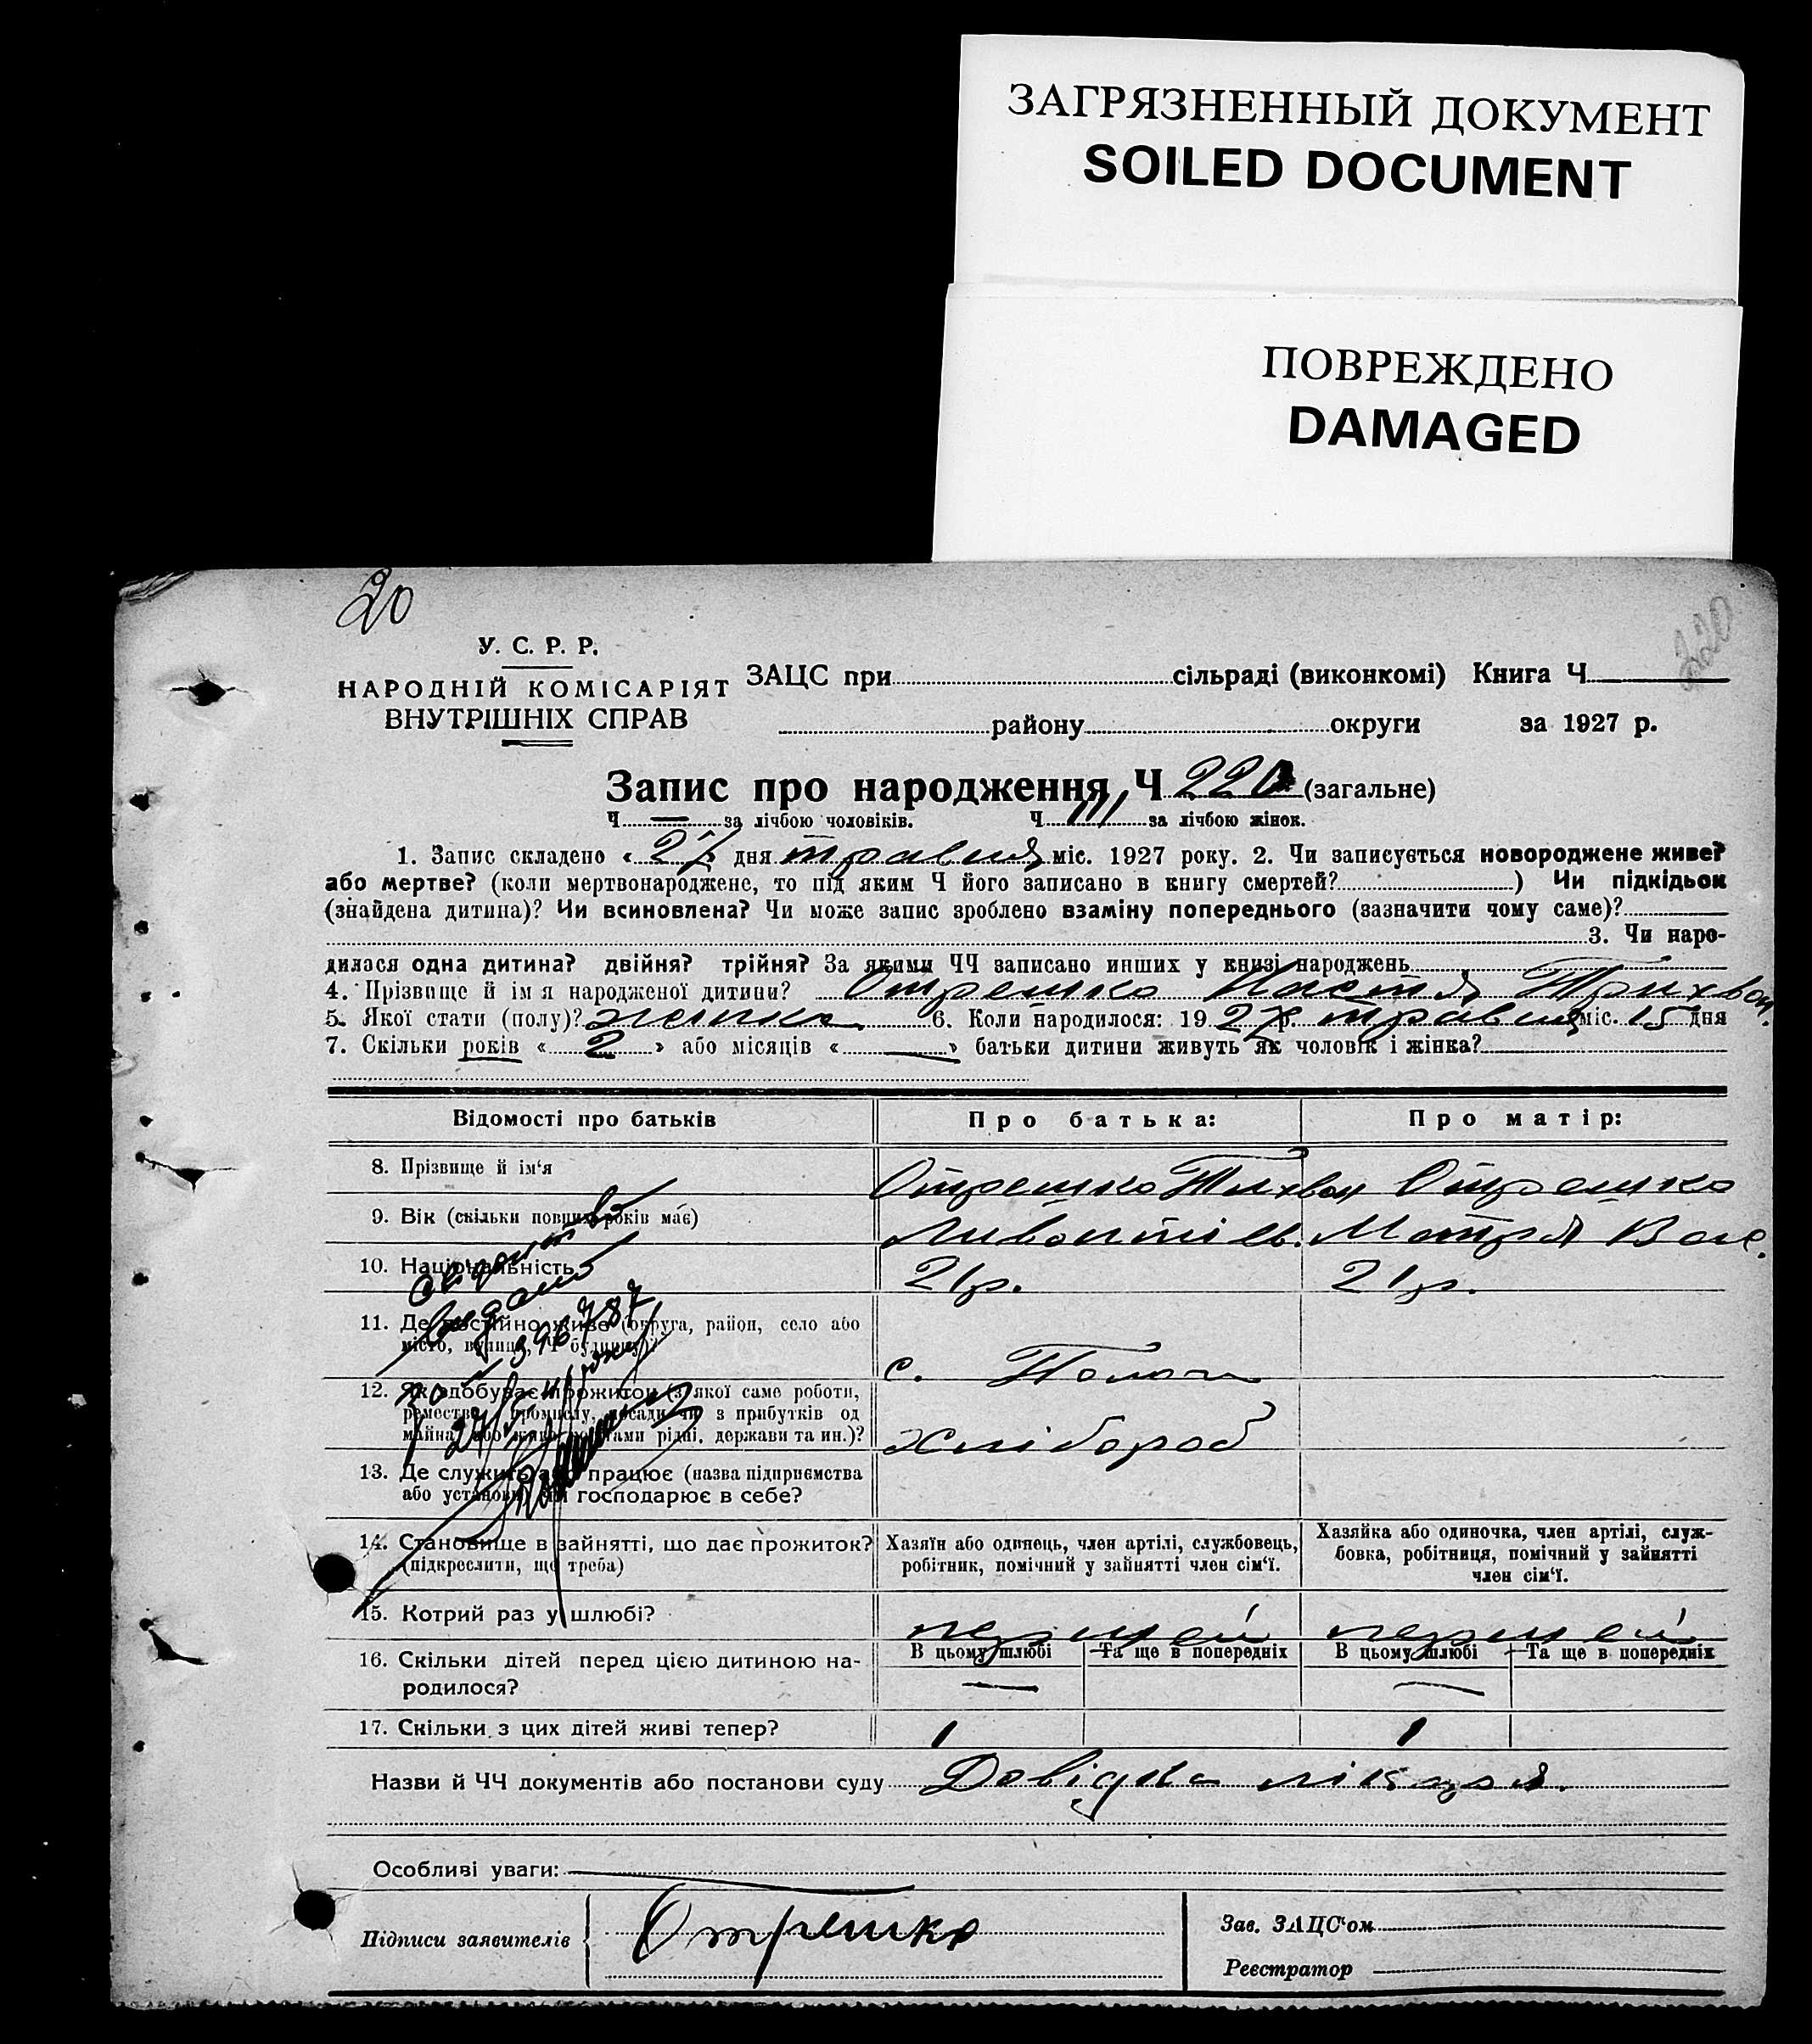 ЗАГРЯЗНЕННЫЙ ДОКУМЕНТ
SOILED DOCUMENT
ПОВРЕЖДЕНО
DAMAGED
20
220
У. С. Р. Р.
НАРОДНІЙ КОМІСАРІЯТ
ВНУТРІШНІХ СПРАВ
ЗАЦС при сільраді (виконкомі) Книга Ч
району округи за 1927 р.
Запис про народження Ч 220 (загальне)
Ч — за лічбою чоловіків. Ч 111 за лічбою жінок.
1. Запис складено « 27 » дня травня міс. 1927 року. 2. Чи записується новороджене живе?
або мертве? (коли мертвонароджене, то під яким Ч його записано в книгу смертей? ) Чи підкідьок
(знайдена дитина)? Чи всиновлена? Чи може запис зроблено взаміну попереднього (зазначити чому саме)?
3. Чи наро-
дилася одна дитина? двійня? трійня? За якими ЧЧ записано инших у книзі народжень
4. Прізвище й імя народженої дитини? Отрешко Настя Трихвон.
5. Якої стати (полу)? жіноча 6. Коли народилося: 1927 р. травня міс. 15 дня
7. Скільки років « 2 » або місяців « — » батьки дитини живуть як чоловік і жінка?
Відомості про батьків Про батька: Про матір:
8. Прізвище й ім‘я Отрешко Отрешко
9. Вік (скільки повних років має) Мотря Вас.
10. Національність 21р. 21р.
11. Де постійно живе (округа, район, село або
місто, вулиця, Ч будинку)? с. Пологи
12. Як здобуває прожиток (з якої саме роботи,
ремества, промислу, посади чи з прибутків од
майна, або живе коштами рідні, держави та ин.)? Хлібороб
13. Де служить або працює (назва підприємства
або установи) чи господарює в себе?
свідоцтво
видано
396787
14. Становище в зайнятті, що дає прожиток?
(підкреслити, що треба)
Хазяїн або одинець, член артілі, службовець,
робітник, помічний у зайнятті член сім‘ї.
Хазяйка або одиночка, член артілі, служ-
бовка, робітниця, помічний у зайнятті
член сім‘ї.
15. Котрий раз у шлюбі? первий первий
16. Скільки дітей перед цією дитиною на-
родилося?
В цьому шлюбі Та ще в попередніх В цьому шлюбі Та ще в попередніх
— —
17. Скільки з цих дітей живі тепер? 1 1
Назви й ЧЧ документів або постанови суду Довідка лікаря.
Особливі уваги:
Підписи заявителів Отрешко
Зав. ЗАЦС‘ом
Реєстратор